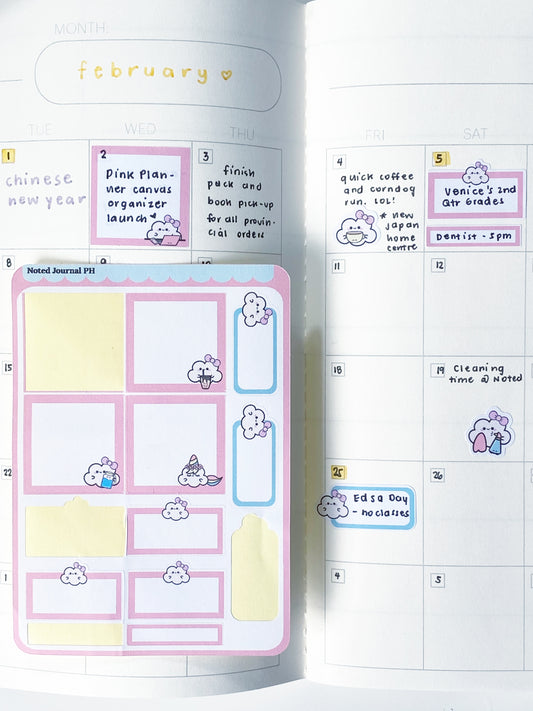 MONTH:
february
TUE
WED
THU
FRI
SAT
1
chinese
new year
2
Pink Plan-
ner canvas
organizer
launch
3
finish
pack and
book pick-up
for all provin-
cial orders
4
quick coffee
and corndog
run, LOL!
* new
japan
home
centre
5
Venice's 2nd
Qtr Grades
Dentist - 5pm
8
9
10
11
12
Noted Journal PH
15
18
19
Cleaning
time @ Noted
22
25
Edsa Day
- no classes
26
1
4
5